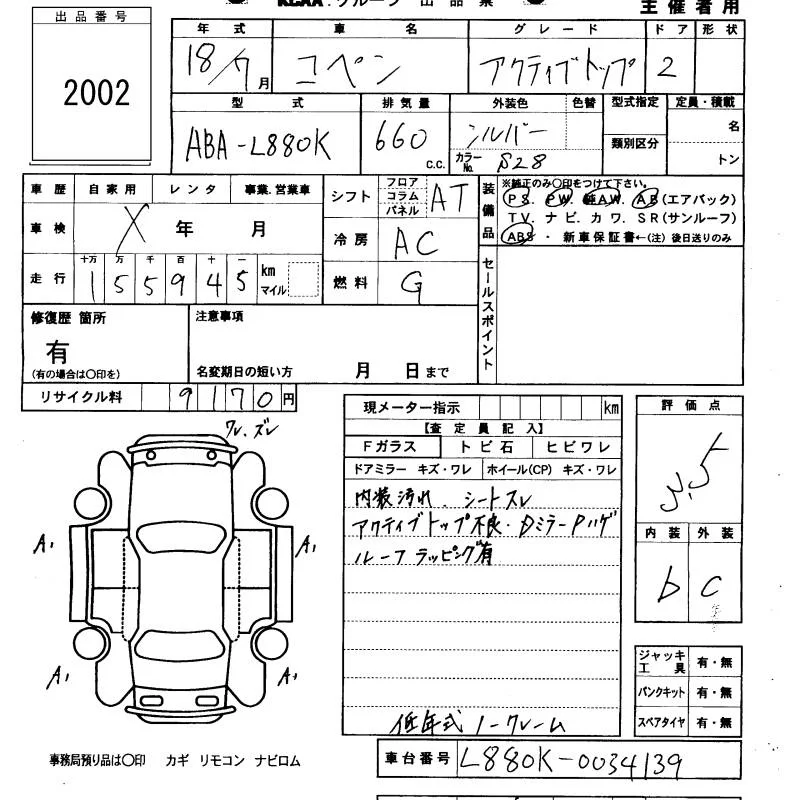 KCAA.グループ 出品票
主催者用
出品番号
2002
年式 車名 グレード ドア 形状
18/7月 コペン アクティブトップ 2
型式 排気量 外装色 色替 型式指定 定員・積載
ABA-L880K 660 c.c. シルバー 類別区分 名
カラーNo. S28 トン
車歴 自家用 レンタ 事業.営業車
車検 X 年 月
走行 十万 万 千 百 十 一
1 5 5 9 4 5 km マイル
シフト フロア コラム パネル AT
冷房 AC
燃料 G
装備品
※純正のみ〇印をつけて下さい。
PS. PW. 純AW. AB(エアバック)
TV. ナビ. カワ. SR(サンルーフ)
ABS ・ 新車保証書←(注)後日送りのみ
セールスポイント
修復歴 箇所
有
(有の場合は〇印を)
注意事項
名変期日の短い方 月 日まで
リサイクル料 9170円
ワレ.ズレ
A1 A1
A1 A1
事務局預り品は〇印 カギ リモコン ナビロム
現メーター指示 km
【査定員記入】
Fガラス トビ石 ヒビワレ
ドアミラー キズ・ワレ ホイール(CP) キズ・ワレ
内装汚れ.シートスレ
アクティブトップ不良.DミラーPハゲ
ルーフラッピング有
低年式ノークレーム
車台番号 L880K-0034139
評価点
3.5
内装 外装
b C
ジャッキ工具 有・無
パンクキット 有・無
スペアタイヤ 有・無